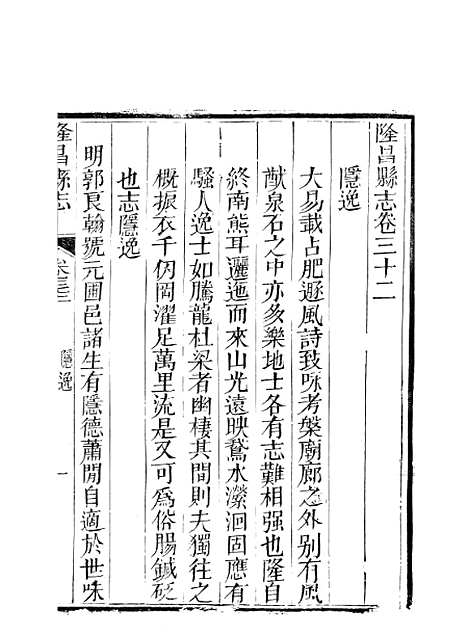 隆昌縣志卷三十二
隱逸
大易載占肥遯風詩致咏考槃廟廊之外別有風
猷泉石之中亦多樂地士各有志難相强也隆自
終南熊耳邐迤而來山光遠映鵞水瀠洄固應有
騷人逸士如騰龍杜梁者幽棲其間則夫獨往之
概振衣千仞岡濯足萬里流是又可爲俗腸鍼砭
也志隱逸
明郭良翰號元圃邑諸生有隱德蕭閒自適於世味
隆昌縣志
卷三十二
隱逸
一